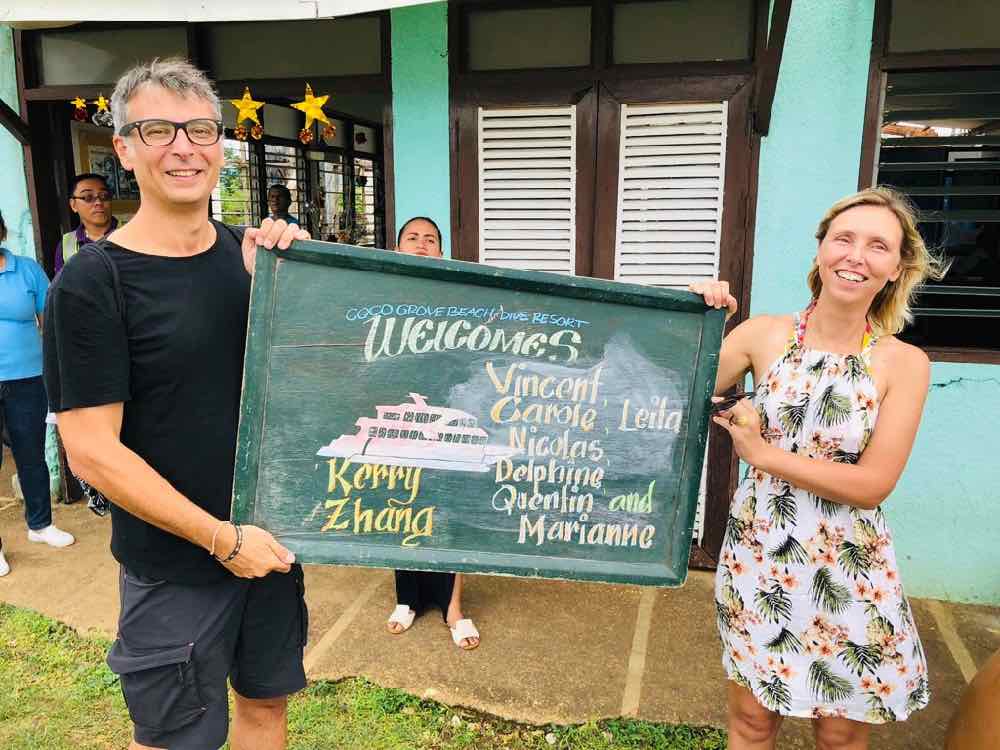 COCO GROVE BEACH & DIVE RESORT
WELCOMES
Vincent,
Carole, Leila
Nicolas,
Delphine,
Quentin and
Marianne
Kerry
Zhang